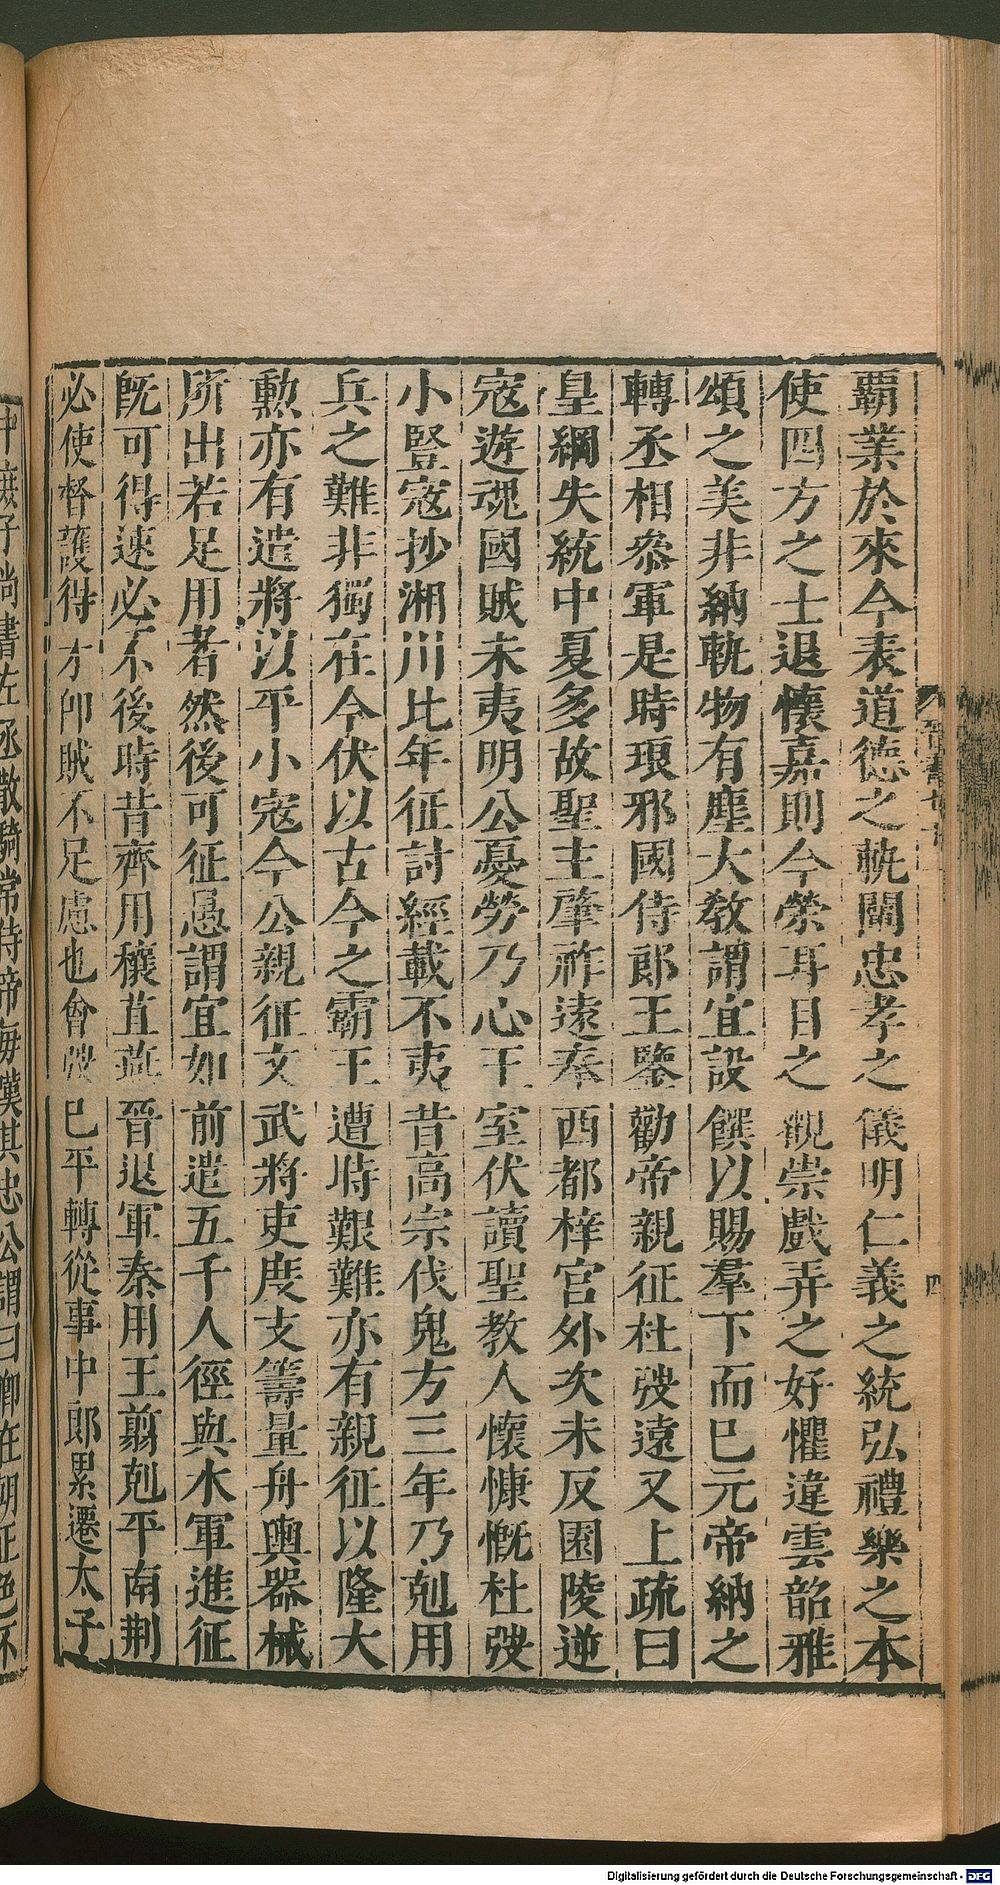 覇業於來今表道德之軌闡忠孝之儀明仁義之統弘禮樂之本
使四方之士退懷嘉則今榮耳目之觀崇戲弄之好懼違雲韶雅
頌之美非納軌物有塵大教謂宜設饌以賜羣下而已元帝納之
轉丞相叅軍是時琅邪國侍郎王鑒勸帝親征杜弢遠又上疏曰
皇綱失統中夏多故聖主肇祚遠奉西都梓宮外次未反園陵逆
寇遊魂國賊未夷明公憂勞乃心王室伏讀聖教人懷慷慨杜弢
小豎寇抄湘川比年征討經載不夷昔高宗伐鬼方三年乃剋用
兵之難非獨在今伏以古今之霸王遭時艱難亦有親征以隆大
勲亦有遣將以平小寇今公親征文武將吏度支籌量舟輿器械
所出若足用者然後可征愚謂宜如前遣五千人徑與水軍進征
旣可得速必不後時昔齊用穰苴燕晉退軍秦用王翦剋平南荆
必使督護得才卽賊不足慮也會弢已平轉從事中郎累遷太子
中庶子尚書左丞散騎常侍帝每嘆其忠公謂曰卿在朝正色不
四
Digitalisierung gefördert durch die Deutsche Forschungsgemeinschaft - DFG